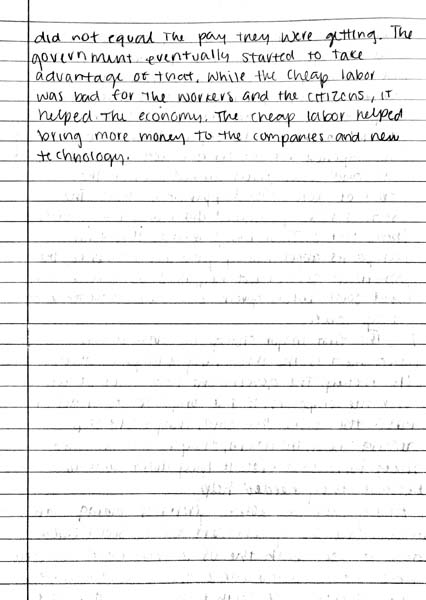 did not equal the pay they were getting. The
government eventually started to take
advantage of that. While the cheap labor
was bad for the workers and the citizens, it
helped the economy. The cheap labor helped
bring more money to the companies and new
technology.